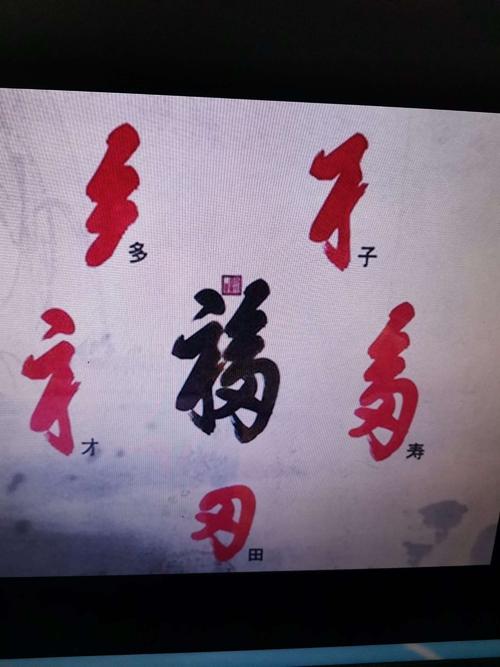 多
子
福
才
寿
田